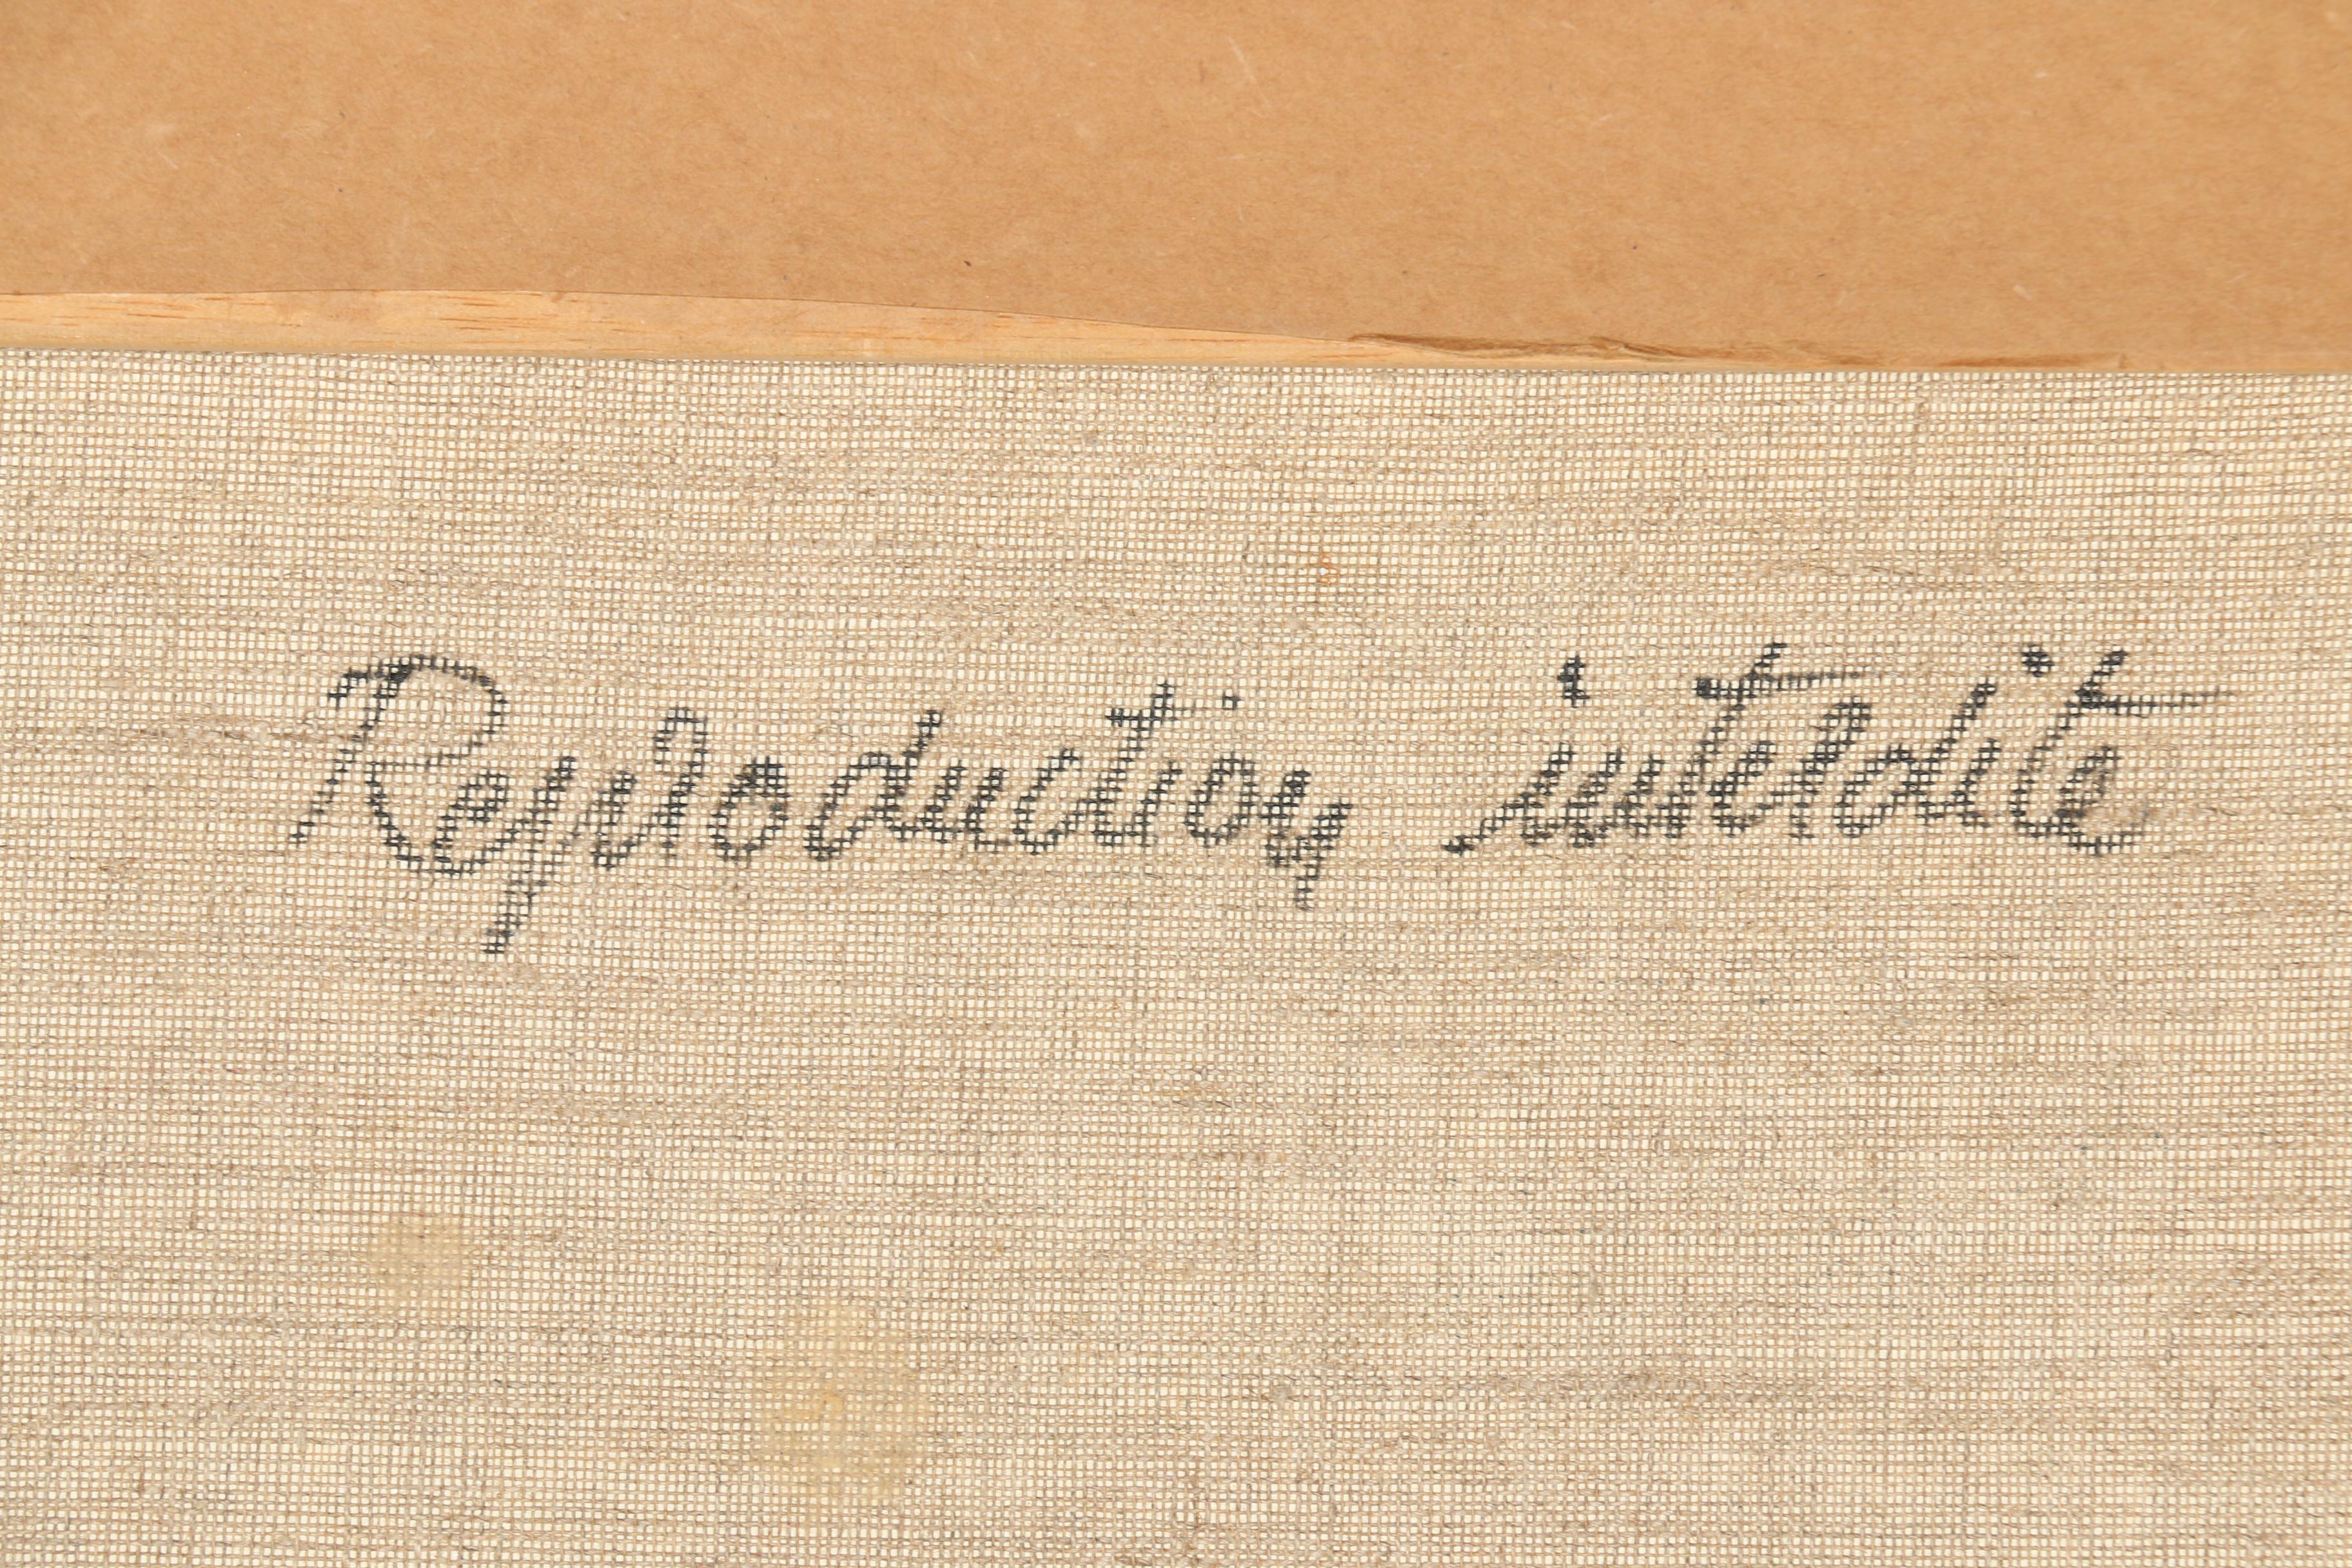 Reproduction interdite